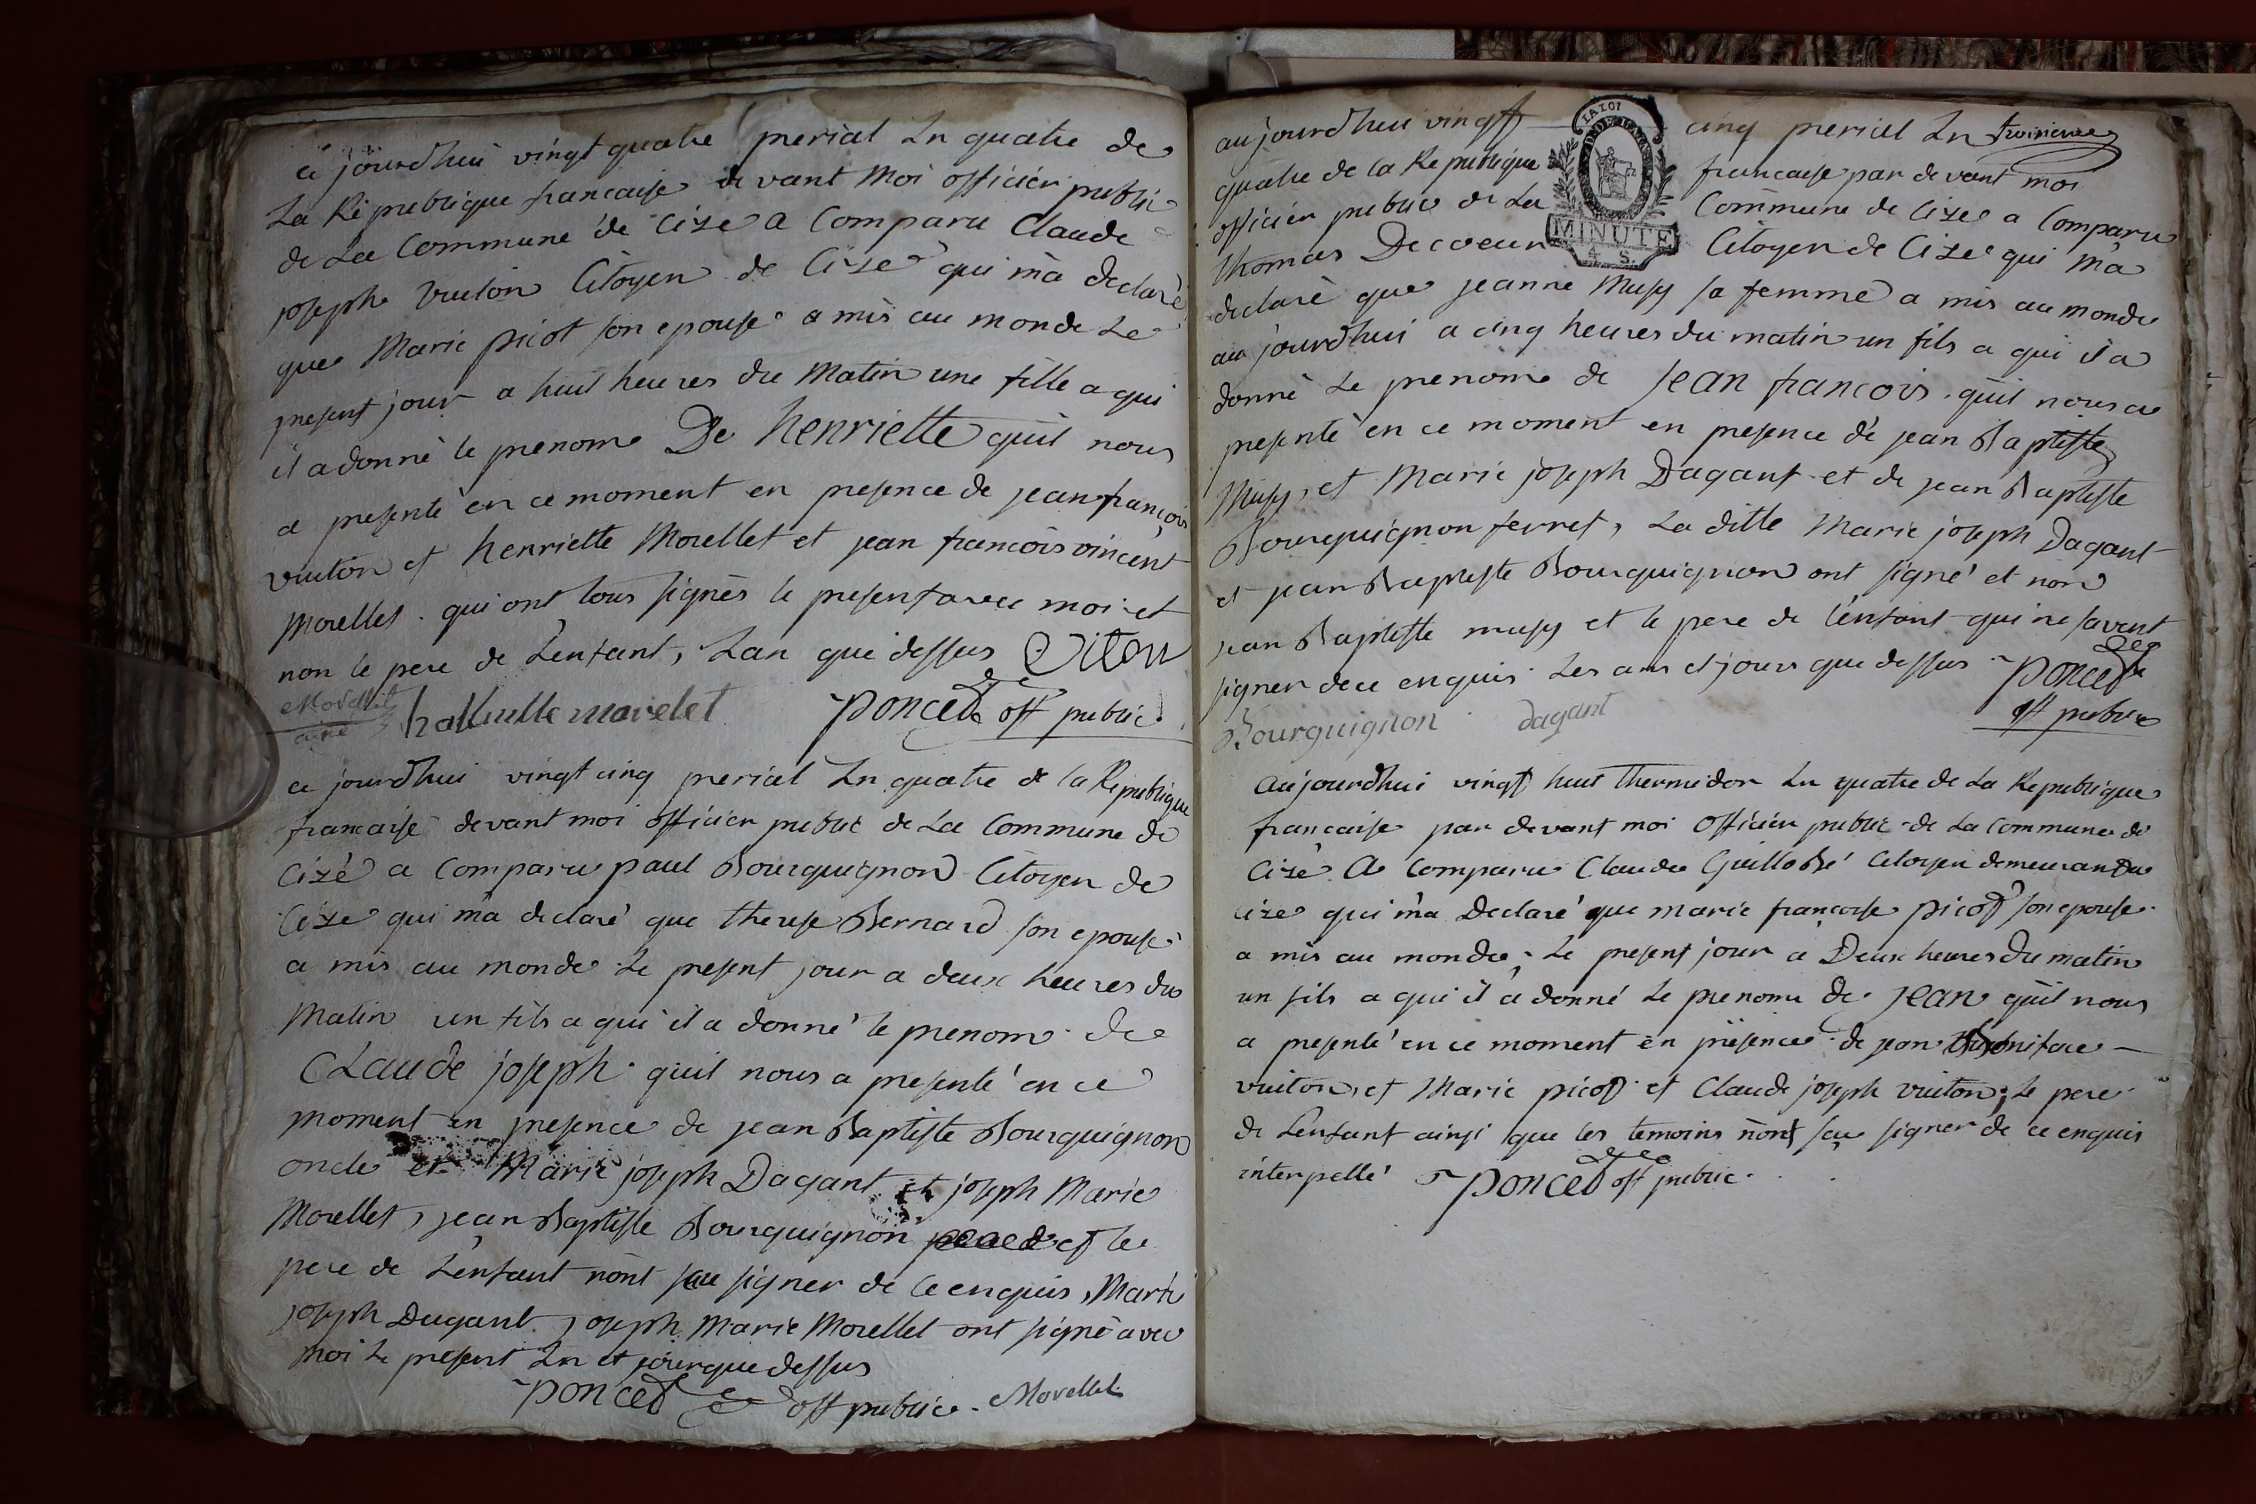 ce jourd'hui vingt quatre prerial Ln quatre de
La République francaise devant moi officier public
de La Commune de Cize a Comparu Claude
joseph vuiton Citoyen de Cize qui m'a declaré
que Marie picot son epouse a mis au monde Le
present jour a huit heures du Matin une fille a qui
il a donné le prenom De henriette qu'il nous
a presenté en ce moment en presence de jean françois
vuiton et henriette Morellet et jean francois vincent
Morellet. qui ont tous signés le present avec moi et
non le pere de L'enfant, Lan que dessus Viton
Morellet
ainé
morelet poncet off public.
ce jourd'hui vingt cinq prerial Ln quatre de la Republique
francaise devant moi officier public de La Commune de
Cizé a Comparu paul Bourguignon Citoyen de
Cize qui m'a declaré que therese Bernard son epouse
a mis au monde Le present jour a deux heures du
Matin un fils a qui il a donné le prenom de
CLaude joseph qu'il nous a presenté en ce
moment en presence de jean Baptiste Bourguignon
oncle et Marie joseph Dagant et joseph Marie
Morellet, jean Baptiste Bourguignon et le
pere de L'enfant n'ont sçu signer de ce enquis, Marie
joseph Dagant joseph Marie Morellet ont signé avec
moi Le present Ln et jour que dessus
poncet off public. Morellet
aujourd'hui vingt cinq prerial Ln troisieme
quatre de la Republique francaise par devant moi
officier public de La Commune de Cize a Comparu
thomas Decoeur Citoyen de Cize qui m'a
declaré que jeanne Musy sa femme a mis au monde
aujourd'hui a cinq heures du matin un fils a qui il a
donné Le prenom de jean francois. qu'il nous a
presenté en ce moment en presence de jean Baptiste
Musy, et Marie joseph Dagant et de jean Baptiste
Bourguignon ferret, La ditte Marie joseph Dagant
et jean Baptiste Bourguignon ont signé et non
jean Baptiste musy et le pere de l'enfant qui ne savent
signer de ce enquis. Les ans et jours que dessus. poncet
Bourguignon dagant off public
LA LOI
MINUTE
4 S.
aujourd'hui vingt huit thermidor Ln quatre de La Republique
française par devant moi officier public de La commune de
Cize A Comparu Claude Guillobé Citoyen demeurant a
cize qui m'a Declaré que marie françoise picot son epouse
a mis au monde, Le present jour a Deux heures du matin
un fils a qui il a donné Le prenom de jean qu'il nous
a presenté en ce moment en presence de jean Boniface
vuiton, et Marie picot et Claude joseph vuiton, Le pere
de L'enfant ainsi que les temoins n'ont sçu signer de ce enquis
interpellé poncet off public.